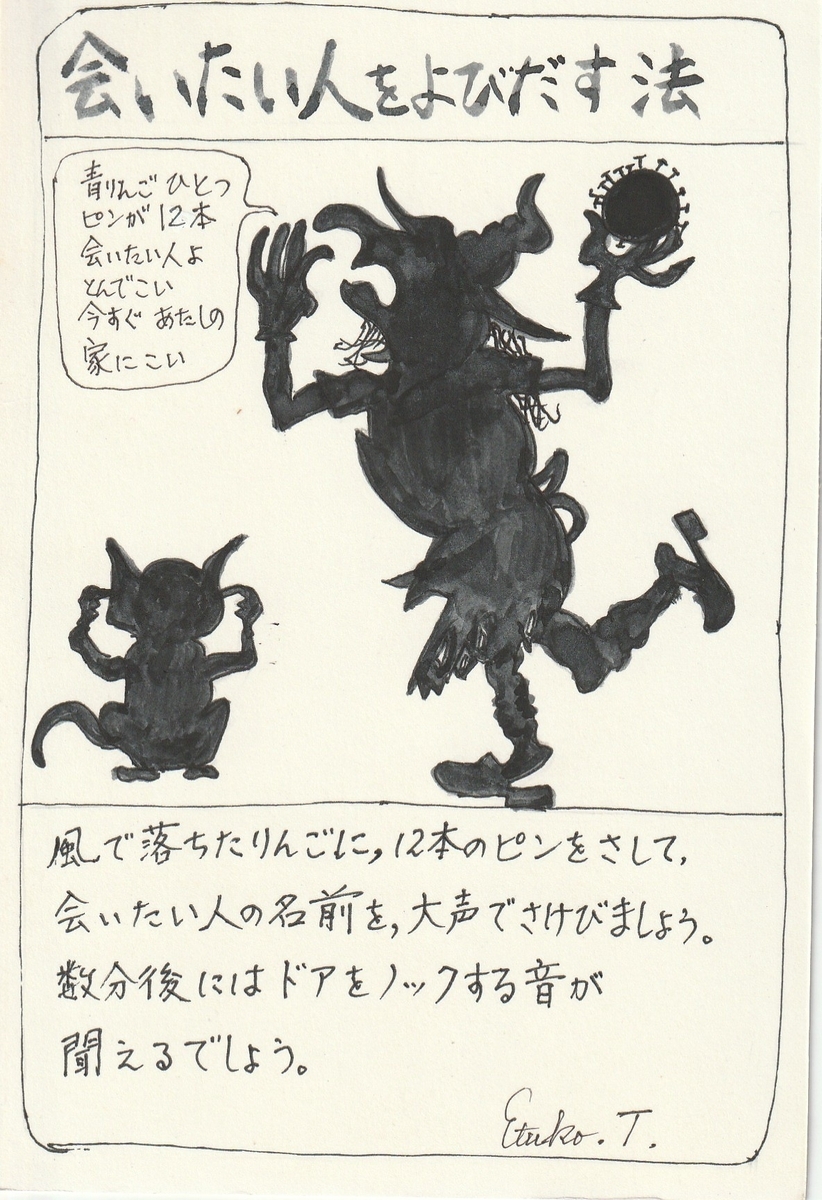 会いたい人をよびだす法
青りんご ひとつ
ピンが 12本
会いたい人よ
とんでこい
今すぐ あたしの
家にこい
風で落ちたりんごに，12本のピンをさして，
会いたい人の名前を，大声でさけびましょう。
数分後にはドアをノックする音が
聞えるでしょう。
Etuko. T.